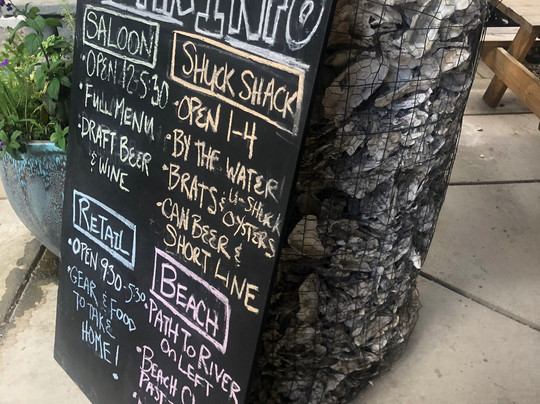 INFO
SALOON
• OPEN 12-5:30
• FULL MENU
• DRAFT BEER
& WINE
SHUCK SHACK
• OPEN 1-4
• BY THE WATER
• BRATS & U-SHUCK
OYSTERS
• CAN BEER &
SHORT LINE
RETAIL
• OPEN 930-5:30
• GEAR & FOOD
TO TAKE
HOME!
BEACH
• PATH TO RIVER
ON LEFT
• BEACH
PAST